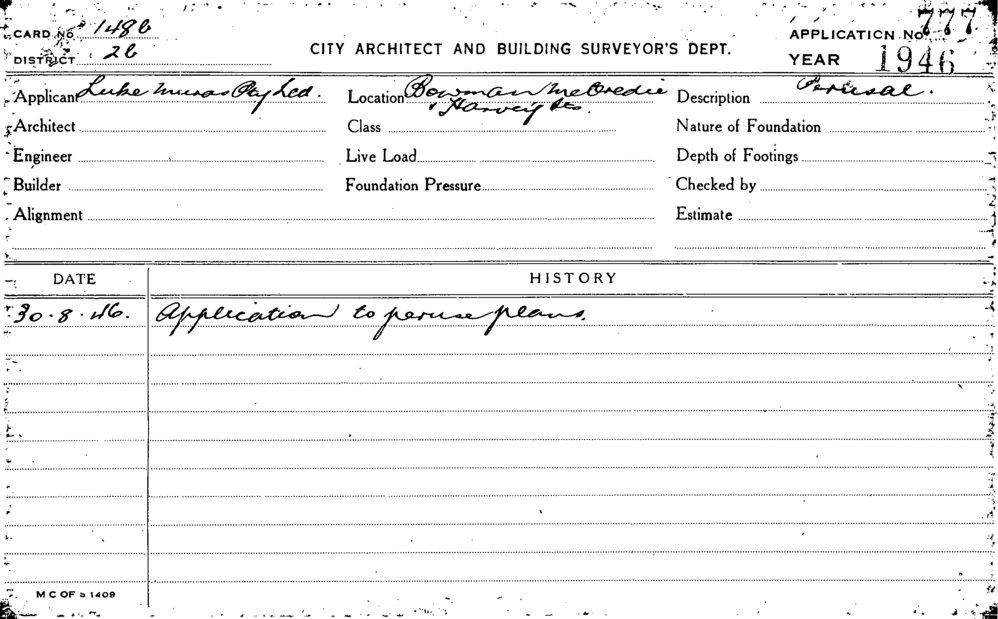 CARD No 148b
DISTRICT 2b
CITY ARCHITECT AND BUILDING SURVEYOR'S DEPT.
APPLICATION No. 777
YEAR 1946
Applicant Luke Muras Pty Ltd.
Location Bowman McCredie
& Harvey Sts.
Description Perusal.
Architect
Class
Nature of Foundation
Engineer
Live Load
Depth of Footings
Builder
Foundation Pressure
Checked by
Alignment
Estimate
DATE HISTORY
30.8.46. Application to peruse plans.
M C OF S 1409